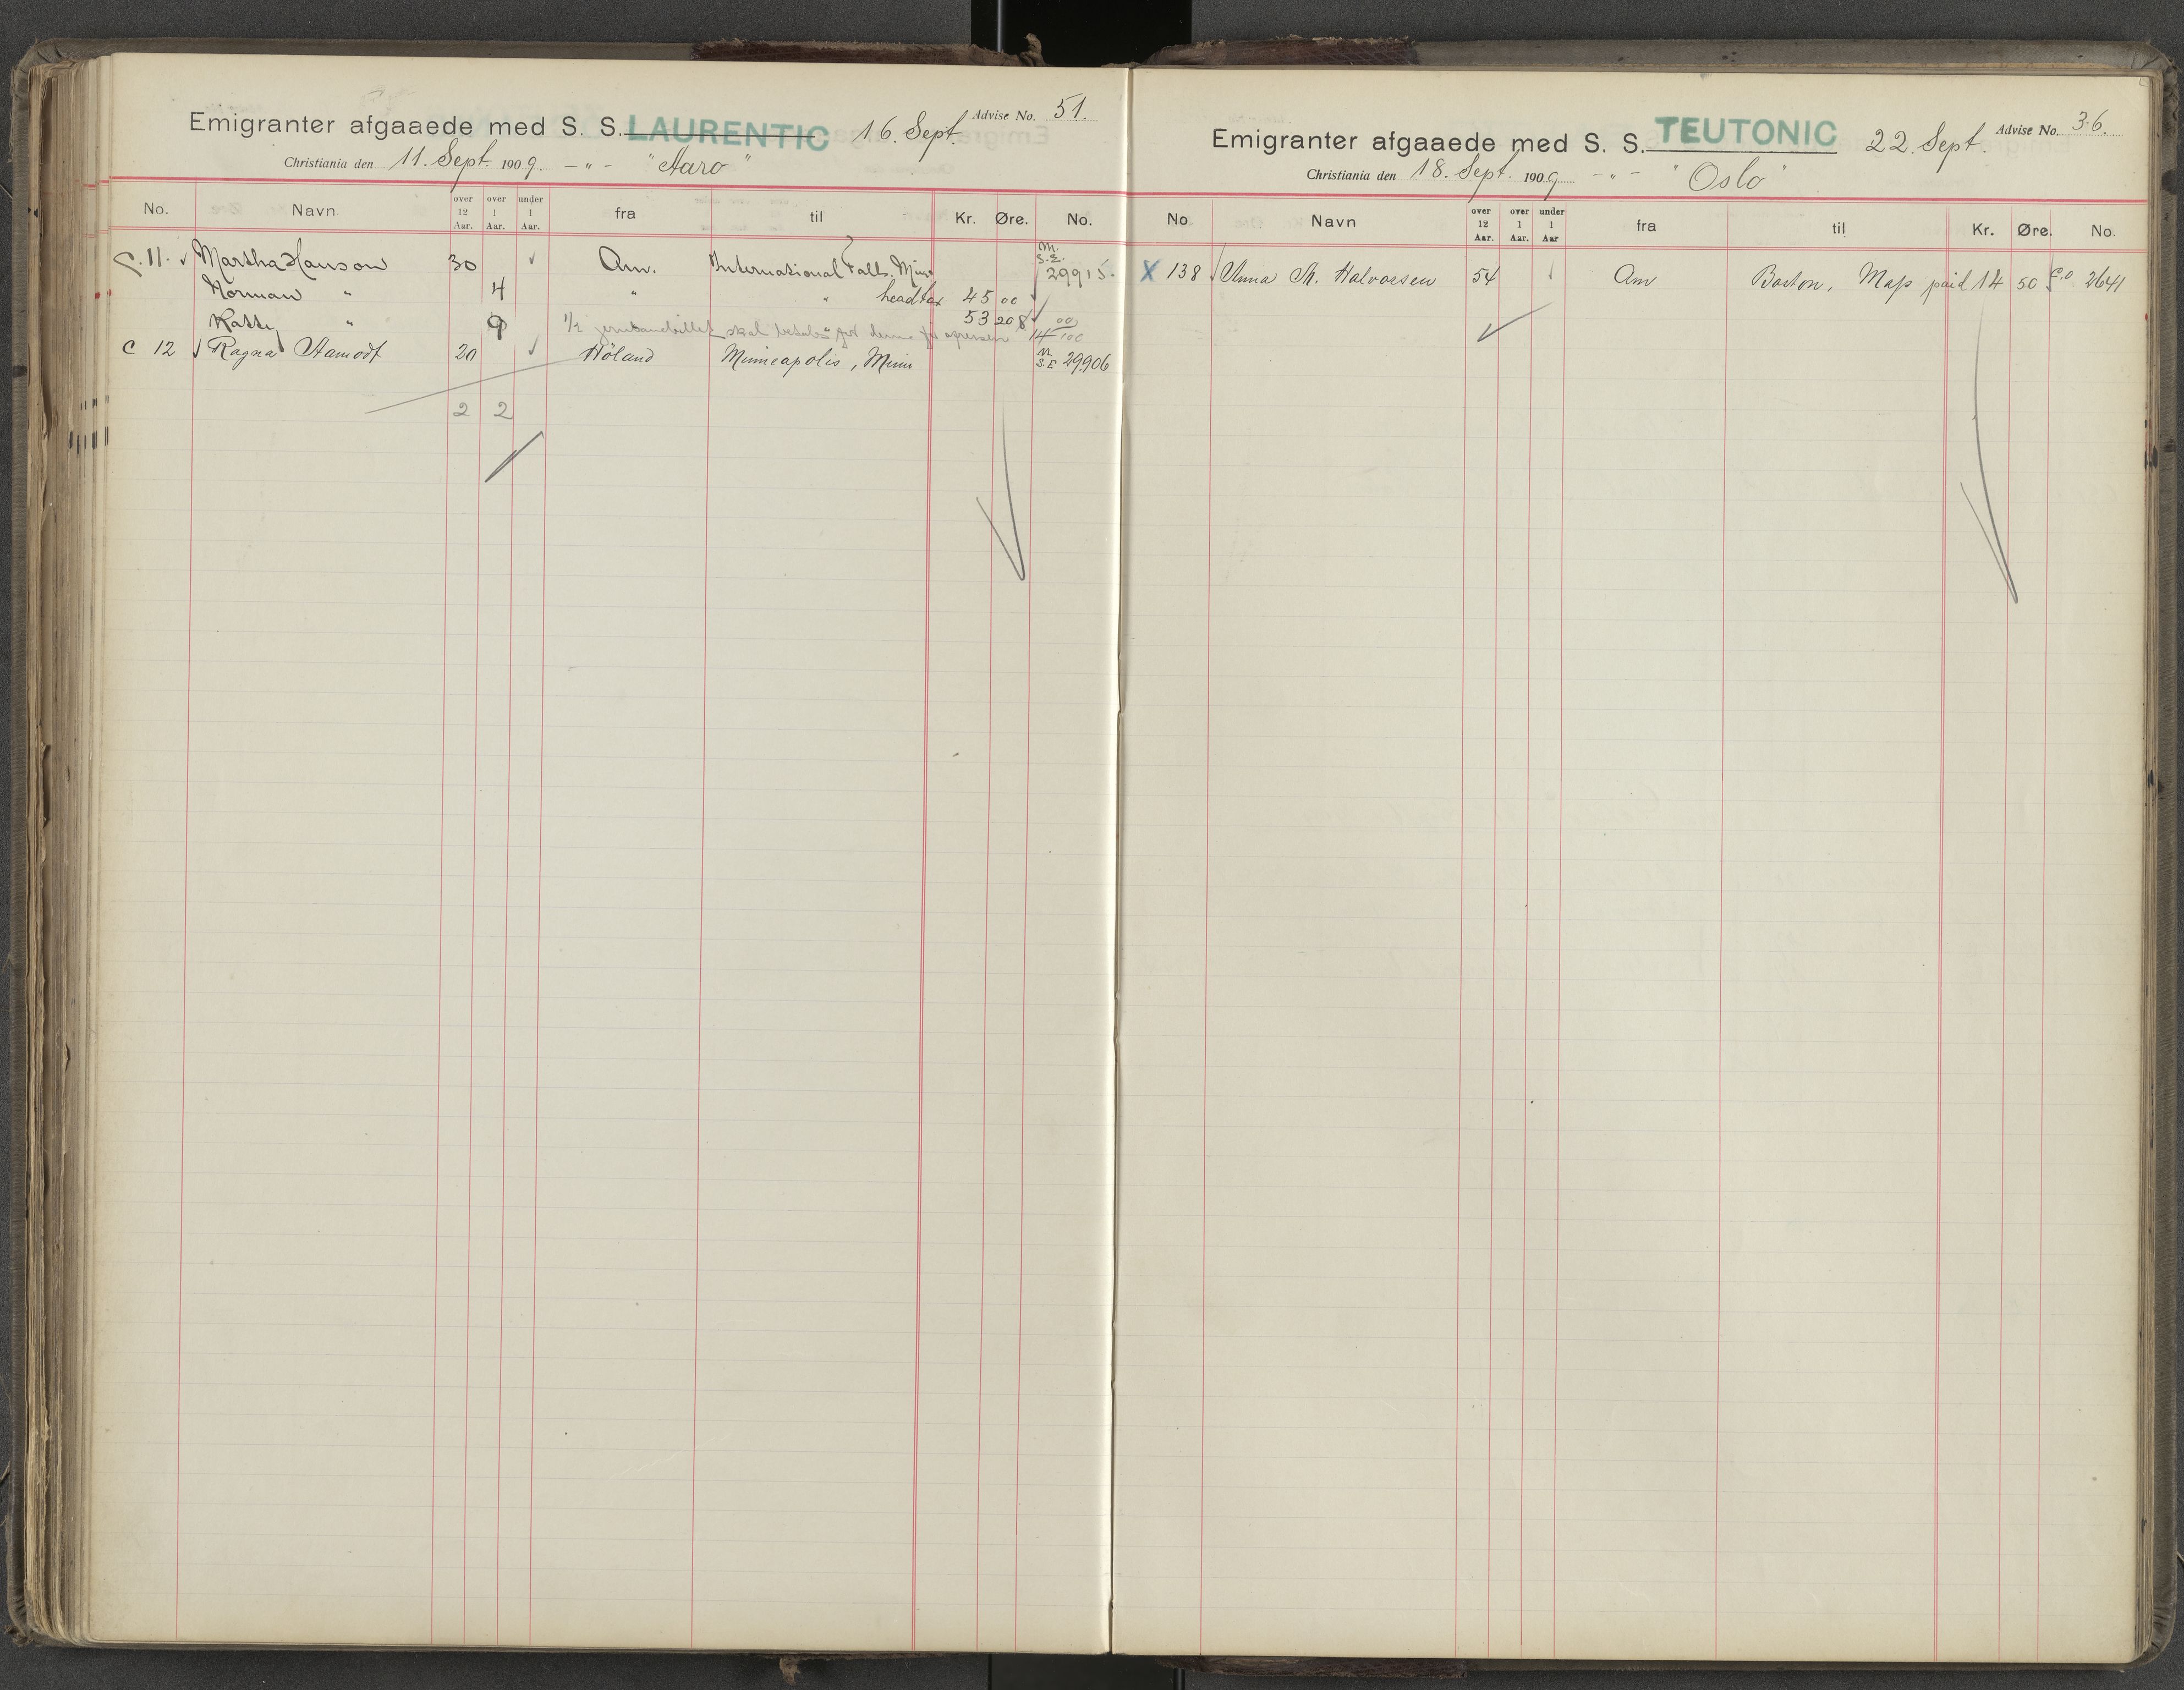 Emigranter afgaaede med S. S. LAURENTIC 16. Sept. Advise No. 51.
Christiania den 11. Sept. 1909. - " - "Aaro"
No. Navn. over 12 Aar. over 1 Aar. under 1 Aar. fra til Kr. Øre. No.
C. 11. Martha Hanson 30 Am. International Falls, Minn M. S.E. 29915.
Norman " 4 " " headtax 45 00
Katty " 9 53 20
1/2 jernbanebillet skal betales for denne
C 12 Ragna Aamodt 20 Höland Minneapolis, Minn M S.E 29906
2 2
Emigranter afgaaede med S. S. TEUTONIC 22. Sept. Advise No. 36.
Christiania den 18. Sept. 1909 - " - "Oslo"
No Navn over 12 Aar. over 1 Aar. under 1 Aar fra til Kr. Øre. No.
X 138 Anna Th. Halvorsen 54 Am Boston, Mass paid 14 50 C.O. 2641